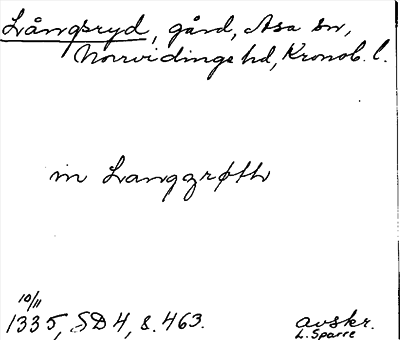 Långsryd, gård, Asa sn,
Norrvidinge hd, Kronob. l.
in Langzrøth
10/11
1335, SD 4, s. 463.
avskr.
L. Sparre